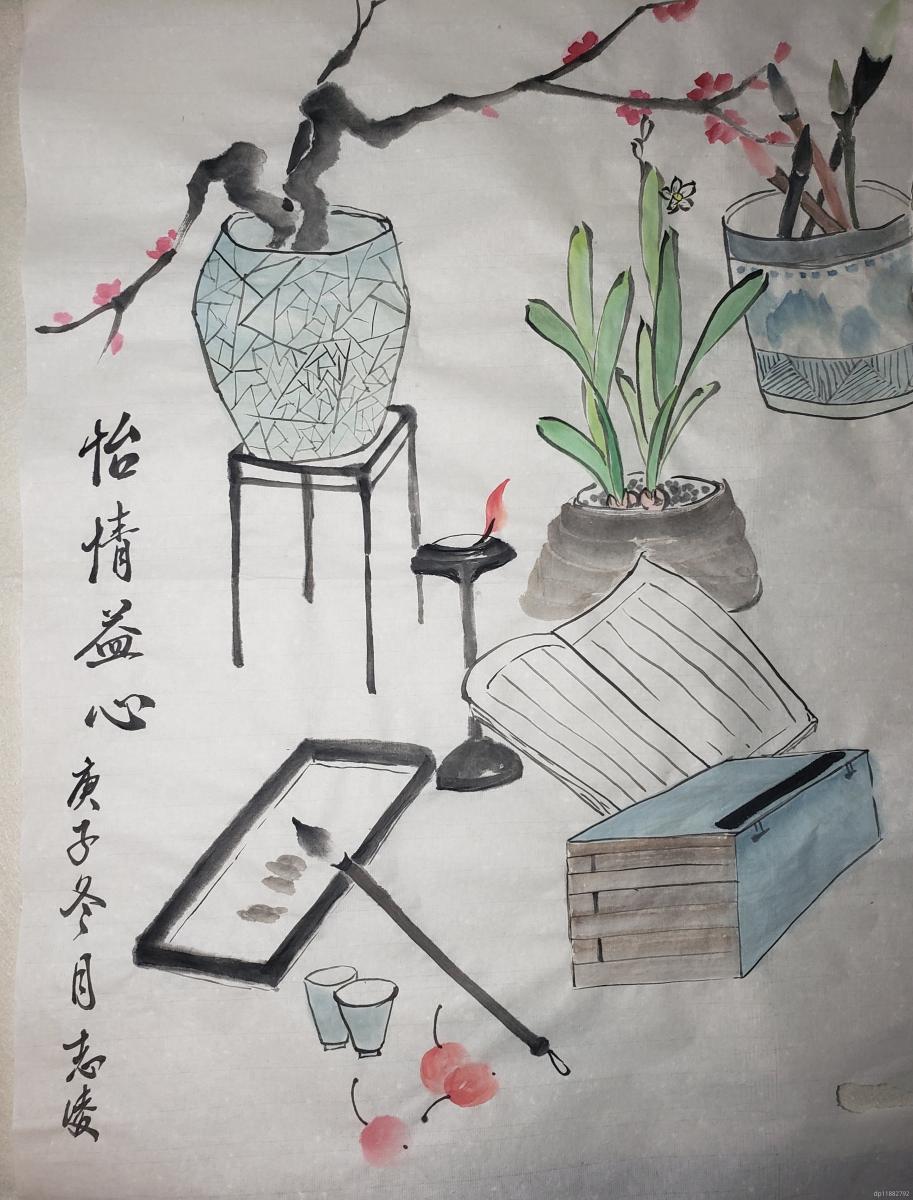 怡情益心
庚子冬月志凌
dp11882792